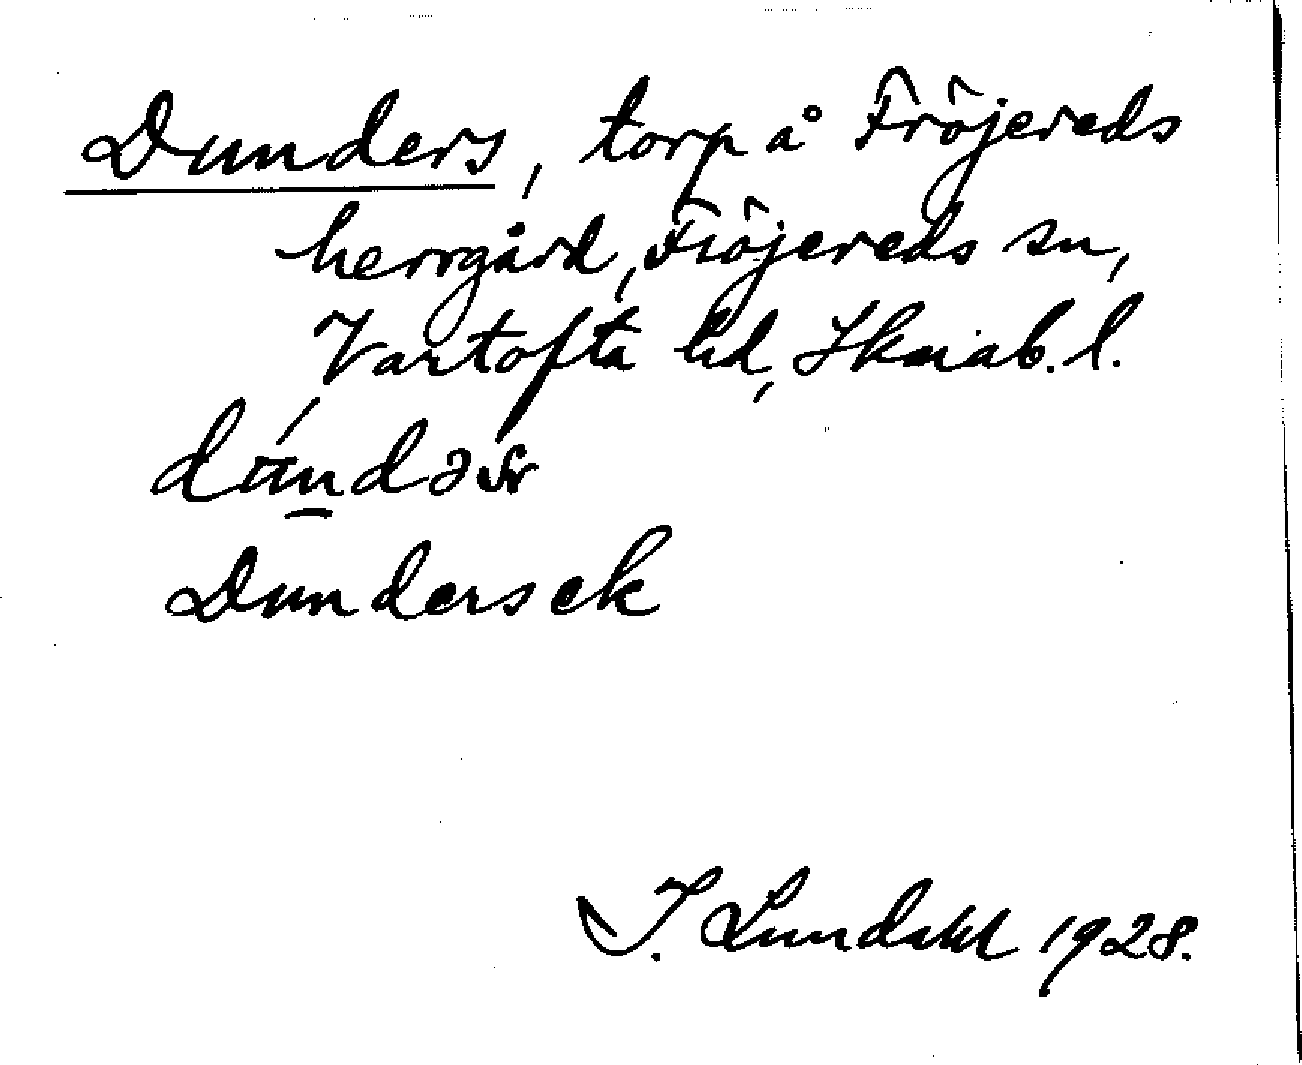 Dunders, torp å Fröjereds
herrgård, Fröjereds sn,
Vartofta hd, Skarab. l.
Dundersek
I. Lundahl 1928.